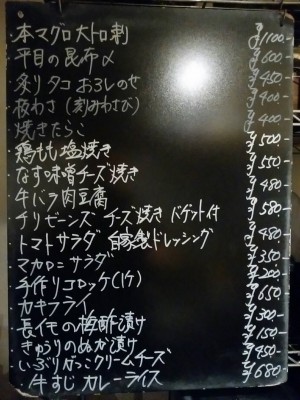 ・本マグロ大トロ刺 ¥1100-
・平目の昆布〆 ¥600-
・炙りタコ おろしのせ ¥450-
・板わさ (刻みわさび) ¥400-
・焼きたらこ ¥400-
・鶏もも塩焼き ¥500-
・なす味噌チーズ焼き ¥550-
・牛バラ肉豆腐 ¥480-
・チリビーンズ チーズ焼き バゲット付 ¥580-
・トマトサラダ 自家製ドレッシング ¥480-
・マカロニサラダ ¥350-
・手作りコロッケ(1ケ) ¥200-
・カキフライ ¥650-
・長イモの梅酢漬け ¥300-
・きゅうりのぬか漬け ¥150-
・いぶりがっこクリームチーズ ¥450-
・牛すじカレーライス ¥680-